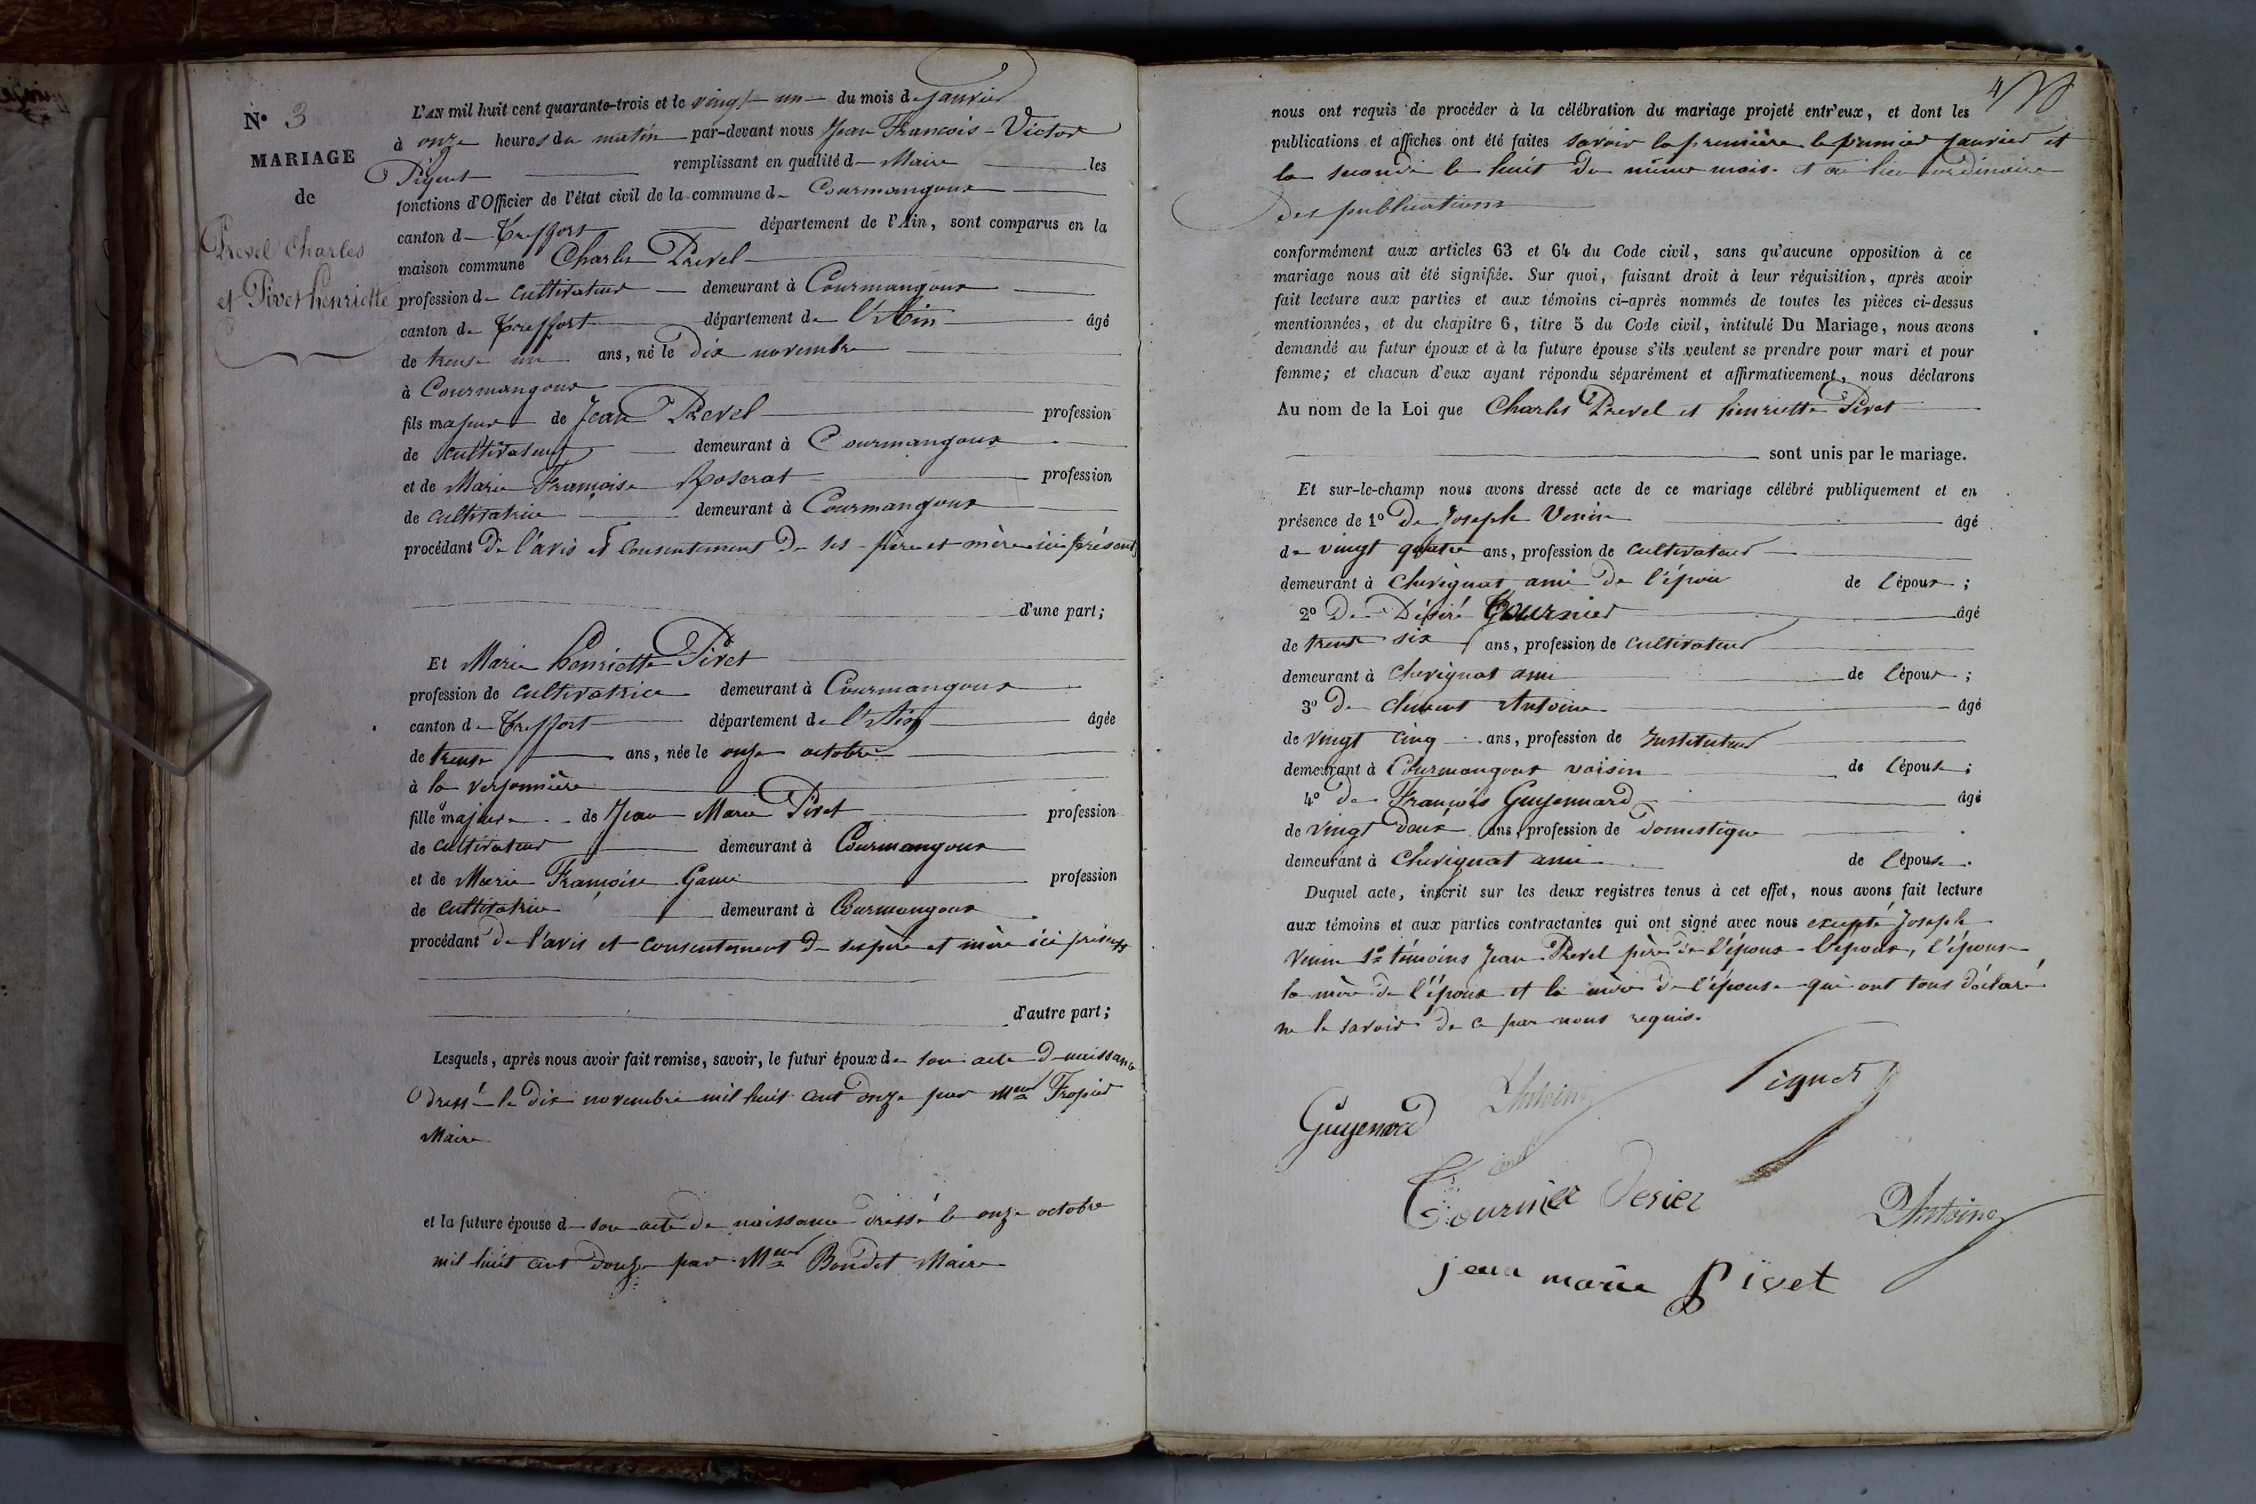 N° 3
MARIAGE
de
Prevel Charles
et Pivet henriette
L'AN mil huit cent quarante-trois et le vingt un du mois de janvier
à onze heures du matin par-devant nous Jean François-Victor
Piquet remplissant en qualité de Maire les
fonctions d'Officier de l'état civil de la commune de Courmangoux
canton de Treffort département de l'Ain, sont comparus en la
maison commune Charles Prevel
profession de cultivateur demeurant à Courmangoux
canton de Treffort département de l'Ain âgé
de trente un ans, né le dix novembre
à Courmangoux
fils majeur de Jean Prevel profession
de cultivateur demeurant à Courmangoux
et de Marie Françoise Roserat profession
de cultivatrice demeurant à Courmangoux
procédant De l'avis et Consentement De ses père et mère ici présents
d'une part;
Et Marie henriette Pivet
profession de cultivatrice demeurant à Courmangoux
canton de Treffort département de l'Ain âgée
de trente ans, née le onze octobre
à la verjonnière
fille majeure de Jean Marie Pivet profession
de cultivateur demeurant à Courmangoux
et de Marie Françoise profession
de cultivatrice demeurant à Courmangoux
procédant De l'avis et consentement de ses père et mère ici présents
d'autre part;
Lesquels, après nous avoir fait remise, savoir, le futur époux de son acte De naissance
Dressé le Dix novembre mil huit cent onze par Meur Fropier
Maire
et la future épouse de son acte De naissance Dressé le onze octobre
mil huit cent Douze par Meur Boudet Maire
4
nous ont requis de procéder à la célébration du mariage projeté entr'eux, et dont les
publications et affiches ont été faites savoir la première le premier janvier et
la seconde le huit Du même mois et au lieu ordinaire
Des publications
conformément aux articles 63 et 64 du Code civil, sans qu'aucune opposition à ce
mariage nous ait été signifiée. Sur quoi, faisant droit à leur réquisition, après avoir
fait lecture aux parties et aux témoins ci-après nommés de toutes les pièces ci-dessus
mentionnées, et du chapitre 6, titre 5 du Code civil, intitulé Du Mariage, nous avons
demandé au futur époux et à la future épouse s'ils veulent se prendre pour mari et pour
femme; et chacun d'eux ayant répondu séparément et affirmativement, nous déclarons
Au nom de la Loi que Charles Prevel et henriette Pivet
sont unis par le mariage.
Et sur-le-champ nous avons dressé acte de ce mariage célébré publiquement et en
présence de 1° De Joseph Venin âgé
de vingt quatre ans, profession de cultivateur
demeurant à Chevignat ami De l'époux de l'époux;
2° De Désiré Tournier âgé
de trente six ans, profession de cultivateur
demeurant à Chevignat ami de l'époux;
3° De Antoine âgé
de vingt cinq ans, profession de Instituteur
demeurant à Courmangoux voisin de l'épouse;
4° De François Guyennard âgé
de vingt Deux ans, profession de Domestique
demeurant à Chevignat ami de l'épouse.
Duquel acte, inscrit sur les deux registres tenus à cet effet, nous avons fait lecture
aux témoins et aux parties contractantes qui ont signé avec nous excepté Joseph
Venin 1er témoins Jean Prevel père De l'époux l'époux, l'épouse
la mère De l'époux et la mère De l'épouse qui ont tous déclaré
ne le savoir De ce par nous requis.
Piquet
Antoine
Guyenard
Tournier Desier
Antoine
jean marie pivet